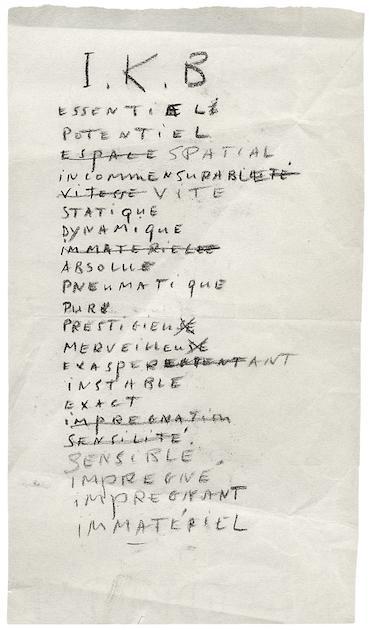 I.K.B
ESSENTIEL
POTENTIEL
ESPACE SPATIAL
INCOMMENSURABLETÉ
VITESSE VITE
STATIQUE
DYNAMIQUE
IMMATERIELLE
ABSOLUE
PNEUMATIQUE
PURE
PRESTIGIEUX
MERVEILLEUX
EXASPERANT
INSTABLE
EXACT
IMPREGNATION
SENSILITÉ.
SENSIBLE
IMPREGNÉ
IMPREGNANT
IMMATÉRIEL